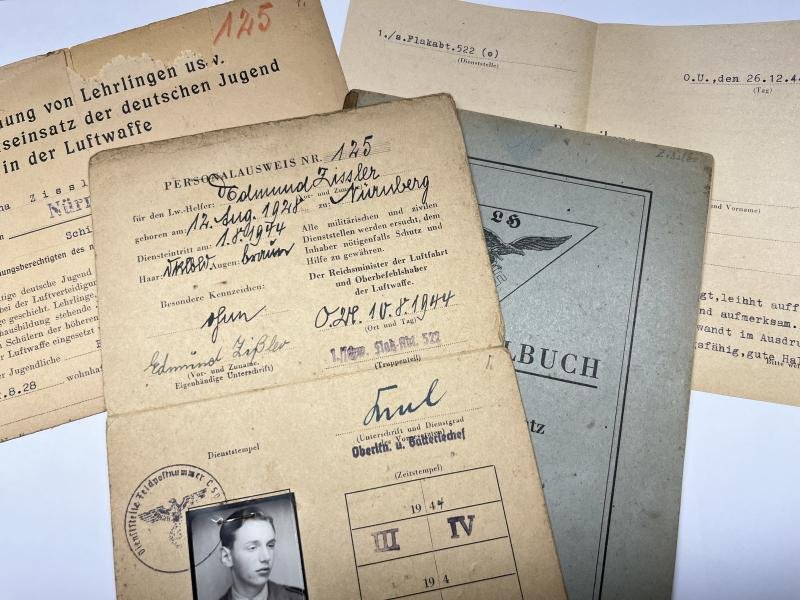 125
ung von Lehrlingen usw.
seinsatz der deutschen Jugend
in der Luftwaffe
na Zissl
Nür
Schi
ungsberechtigten des n
tige deutsche Jugend
bei der Luftverteidigu
ge geschieht. Lehrlinge,
hausbildung stehende
Schülern der höheren
Luftwaffe eingesetzt
Jugendliche
.8.28 wohnhaf
1./s.Flakabt.522 (o)
(Dienststelle)
O.U.,den 26.12.44
(Tag)
und Vorname)
gt,leihht auff
und aufmerksam.
wandt im Ausdru
gsfähig,gute Hal
Bitte wen
Zißler
LH
LBUCH
tz
PERSONALAUSWEIS NR. 125
für den Lw.-Helfer: Edmund Zissler
(Vor- und Zuname)
geboren am: 12. Aug. 1928 zu: Nürnberg
Diensteintritt am: 1.8.1944
Haar: dklbld. Augen: braun
Besondere Kennzeichen:
ohne
Alle militärischen und zivilen
Dienststellen werden ersucht, dem
Inhaber nötigenfalls Schutz und
Hilfe zu gewähren.
Der Reichsminister der Luftfahrt
und Oberbefehlshaber
der Luftwaffe.
O.U. 10.8.1944
(Ort und Tag)
Edmund Zißler
(Vor- und Zuname)
Eigenhändige Unterschrift)
Flak-Abt. 522
(Truppenteil)
(Unterschrift und Dienstgrad
des Vorgesetzten)
Oberltn. u. Batteriechef
Dienststempel
(Zeitstempel)
Dienststelle Feldpostnummer
1944
III IV
194